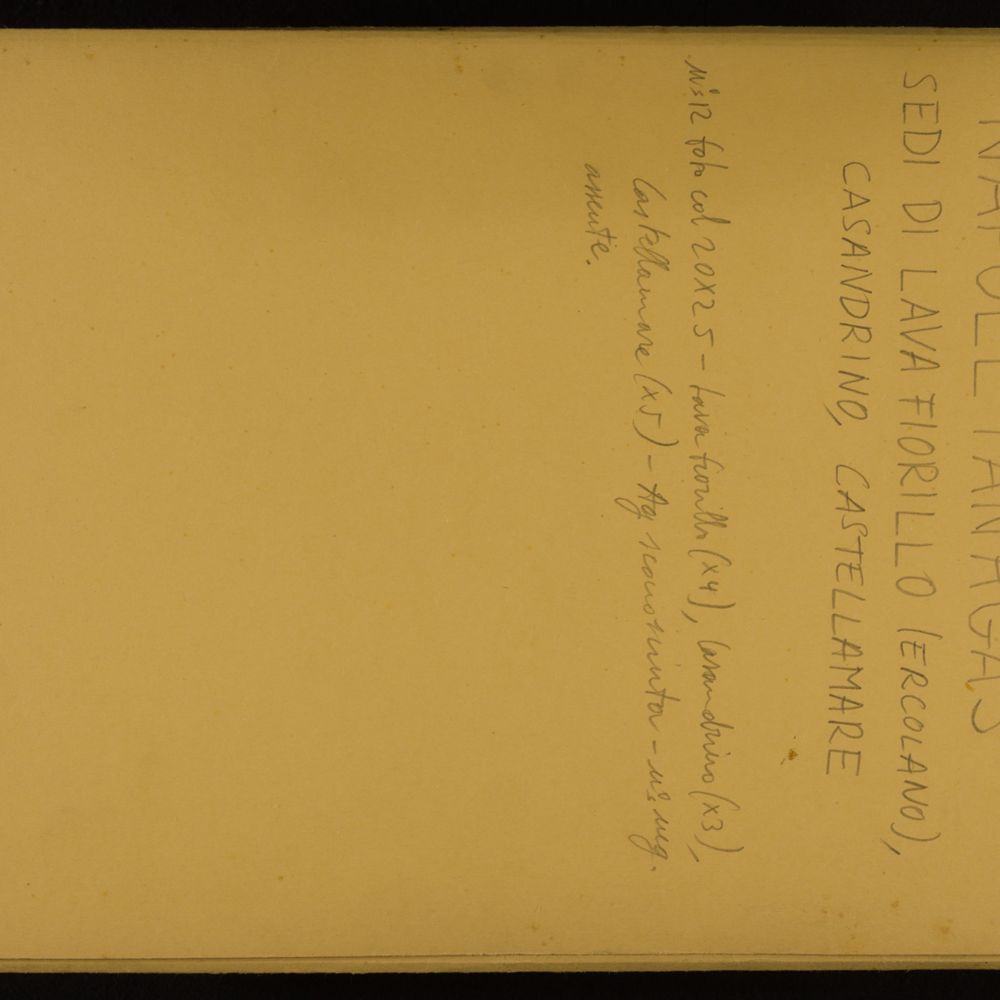 NAPOLETANAGAS
SEDI DI LAVA FIORILLO (ERCOLANO),
CASANDRINO, CASTELLAMARE
n°12 foto col 20x25 - Lava fiorillo (x4), Casandrino (x3),
Castellamare (x5) - Ag. sconosciuta - n° neg.
assente.